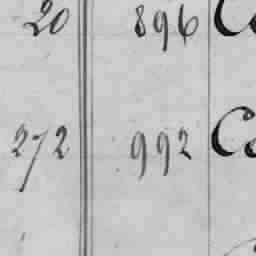 20 896
272 992